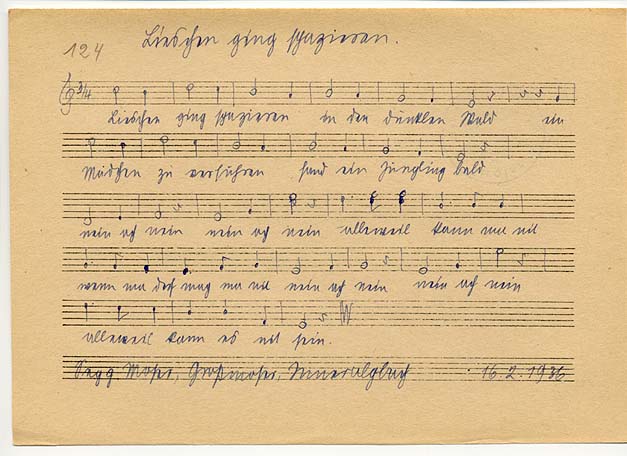 124 Lieschen ging spazieren.
3/4
Lieschen ging spazieren in den dunklen Wald ein
Mädchen zu verführen fand ein Jüngling bald
nein ach nein nein ach nein alleweil kann ma nit
wenn ma doch mag ma nit nein ach nein nein ach nein
alleweil kann es nit sein.
Moser, Großmoser, 16.2.1936